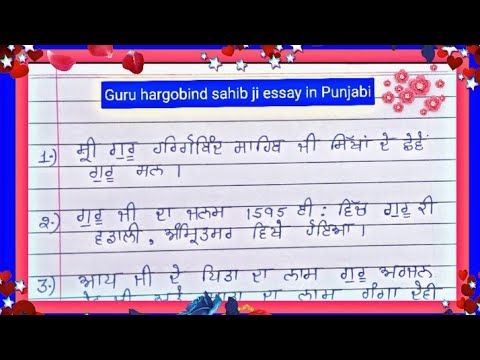 Guru hargobind sahib ji essay in Punjabi
1.) ਸ੍ਰੀ ਗੁਰੂ ਹਰਿਗੋਬਿੰਦ ਸਾਹਿਬ ਜੀ ਸਿੱਖਾਂ ਦੇ ਛੇਵੇਂ
ਗੁਰੂ ਸਨ ।
2.) ਗੁਰੂ ਜੀ ਦਾ ਜਨਮ 1595 ਈ: ਵਿੱਚ ਗੁਰੂ ਕੀ
ਵਡਾਲੀ, ਅੰਮ੍ਰਿਤਸਰ ਵਿਖੇ ਹੋਇਆ ।
3.) ਆਪ ਜੀ ਦੇ ਪਿਤਾ ਦਾ ਨਾਮ ਗੁਰੂ ਅਰਜਨ
ਦਾ ਨਾਮ ਗੰਗਾ ਦੇਵੀ